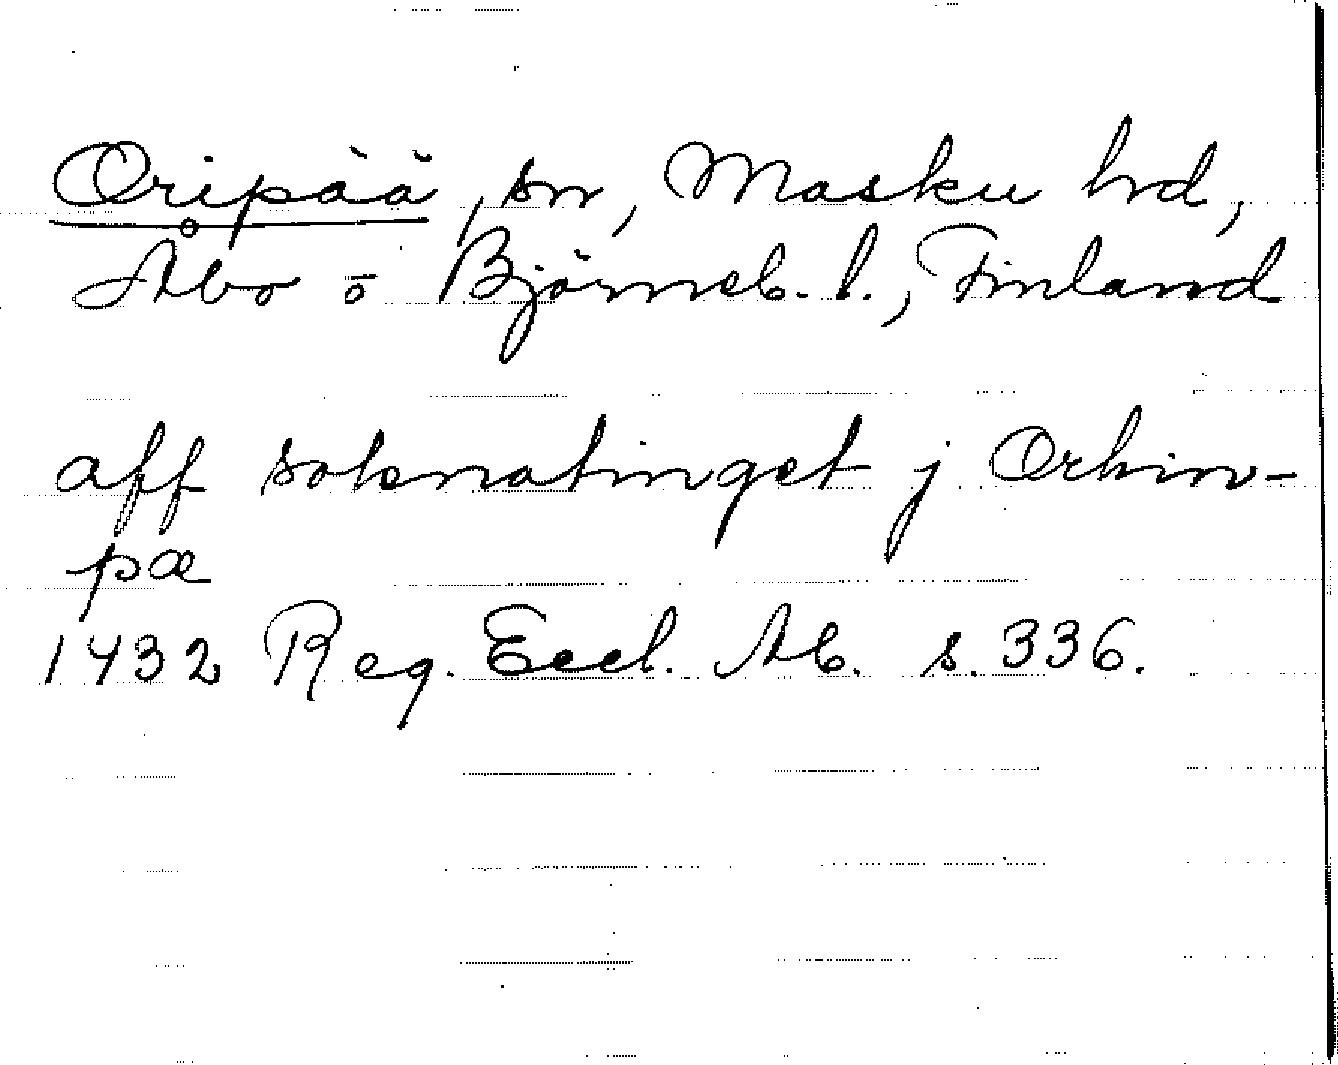 Oripää, sn, Masku hd,
Åbo o Björneb. l., Finland
aff soknatinget j Orhin-
pæ
1432 Reg. Eccl. Ab. s. 336.